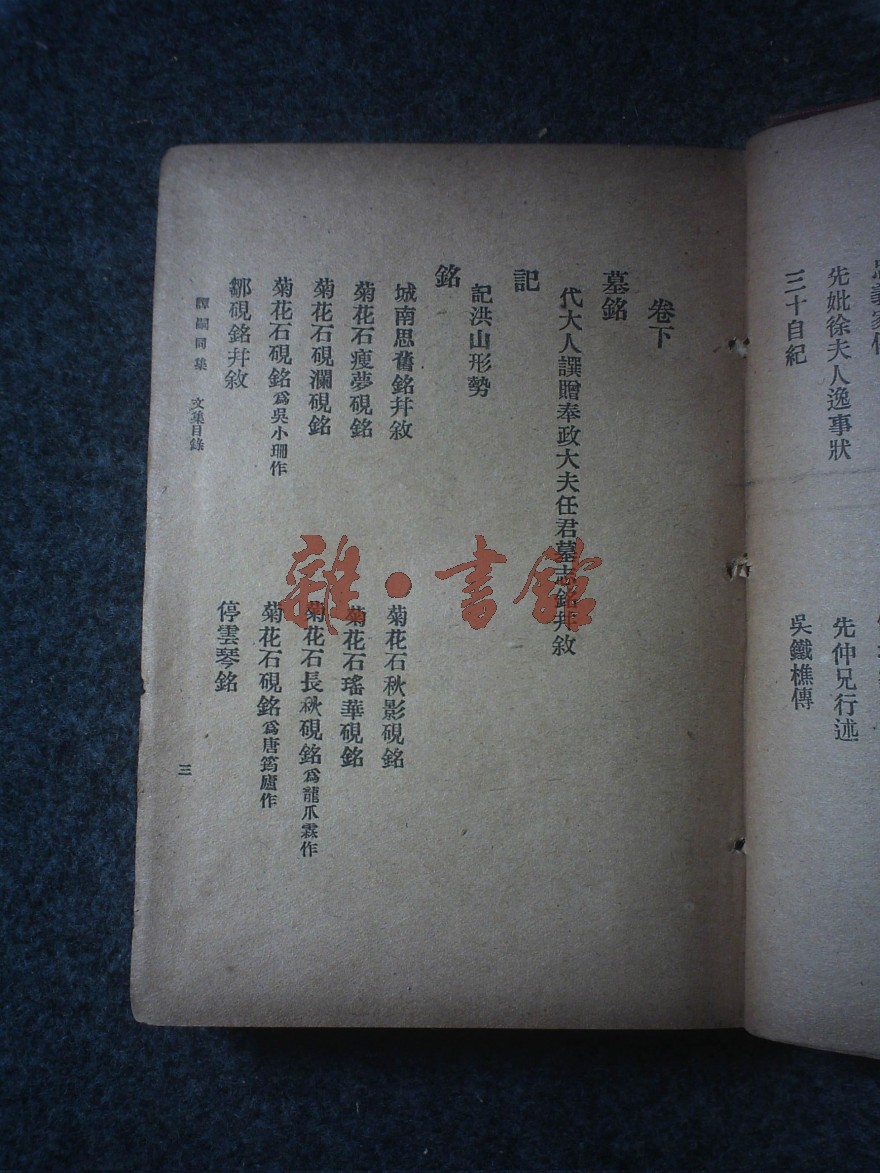 先妣徐夫人逸事狀
先仲兄行述
三十自紀
吳鐵樵傳
卷下
墓銘
代大人譔贈奉政大夫任君墓志銘幷敘
記
記洪山形勢
銘
城南思舊銘幷敘
菊花石秋影硯銘
菊花石瘦夢硯銘
菊花石瑤華硯銘
菊花石硯瀾硯銘
菊花石長秋硯銘爲龍爪霖作
菊花石硯銘爲吳小珊作
菊花石硯銘爲唐筠廬作
鄒硯銘幷敘
停雲琴銘
譚嗣同集 文集目錄
三
雜·書館